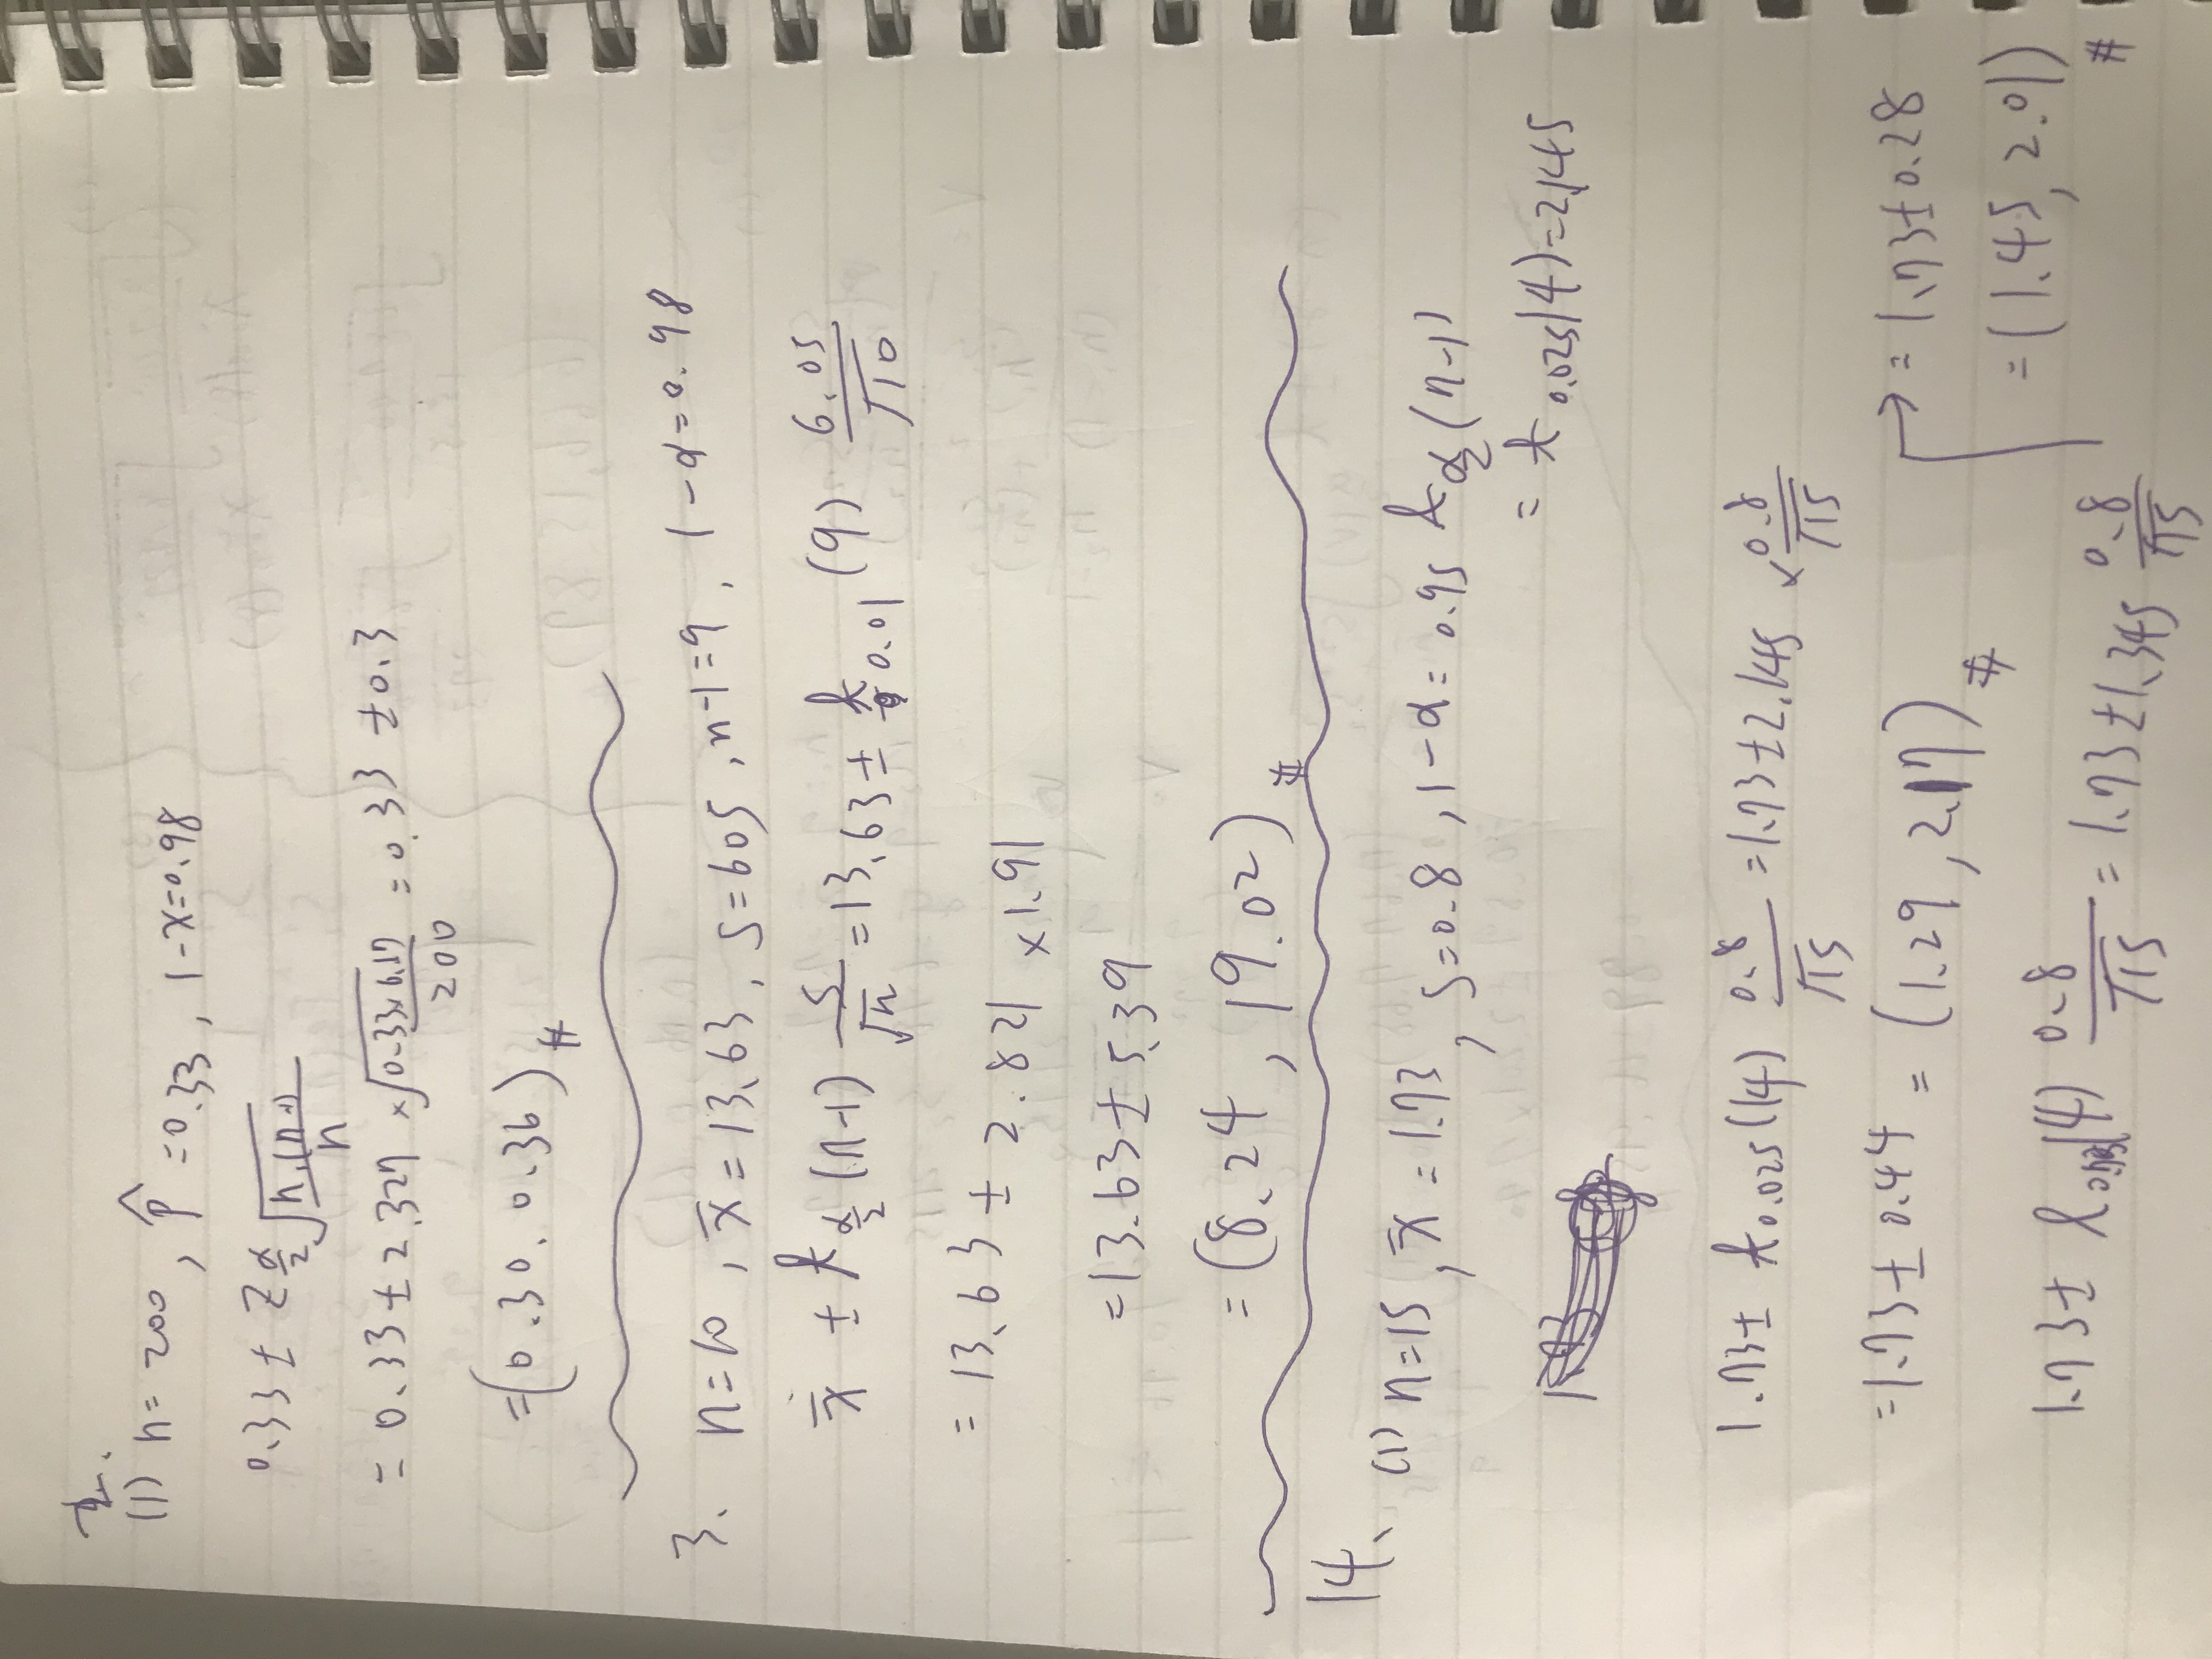 2.
(1) n= 200, p̂ =0.33, 1-x=0.98
0.33 ± Z α/2 √(n.(n-1)/n)
= 0.33 ± 2.327 × √(0.33×6.17/200) = 0.33 ±0.3
=(0.30. 0.36)#
3. n=10, x̄ = 13.63, S=605, n-1=9, 1-α=0.98
x̄ ± t α/2 (n-1) S/√n = 13.63 ± t 0.01 (9) 6.05/√10
= 13.63 ± 2.821 ×1.91
=13.63 ± 5.39
= (8.24, 19.02)#
14.
(1) n=15, x̄ = 1.73, S=0.8, 1-α= 0.95 t α/2 (n-1)
= t 0.025(14)=2.145
1.73± t 0.025(14) 0.8/√15 =1.73±2.145 × 0.8/√15
=1.73± 0.44 = (1.29, 2.17)#
1.73± (14) 0.8/√15 = 1.73±1.345 0.8/√15
→ = 1.73±0.28
=(1.45, 2.01)
#